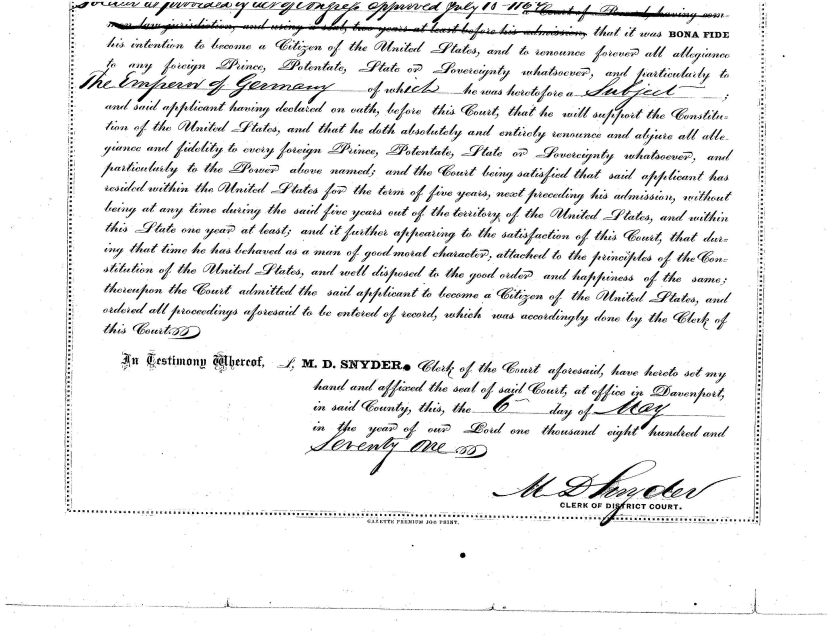 Soldier as provided by act of Congress approved July 1862 a Court of Record, having com-
mon law jurisdiction, and using a seal, two years at least before his admission, that it was BONA FIDE
his intention to become a Citizen of the United States, and to renounce forever all allegiance
to any foreign Prince, Potentate, State or Sovereignty whatsoever, and particularly to
The Emperor of Germany of which he was heretofore a Subject ;
and said applicant having declared on oath, before this Court, that he will support the Constitu-
tion of the United States, and that he doth absolutely and entirely renounce and abjure all alle-
giance and fidelity to every foreign Prince, Potentate, State or Sovereignty whatsoever, and
particularly to the Power above named; and the Court being satisfied that said applicant has
resided within the United States for the term of five years, next preceding his admission, without
being at any time during the said five years out of the territory of the United States, and within
this State one year at least; and it further appearing to the satisfaction of this Court, that dur-
ing that time he has behaved as a man of good moral character, attached to the principles of the Con-
stitution of the United States, and well disposed to the good order and happiness of the same;
thereupon the Court admitted the said applicant to become a Citizen of the United States, and
ordered all proceedings aforesaid to be entered of record, which was accordingly done by the Clerk of
this Court.
In Testimony Whereof, I, M. D. SNYDER. Clerk of the Court aforesaid, have hereto set my
hand and affixed the seal of said Court, at office in Davenport,
in said County, this, the 6 day of May
in the year of our Lord one thousand eight hundred and
Seventy One
M D Snyder
CLERK OF DISTRICT COURT.
GAZETTE PREMIUM JOB PRINT.